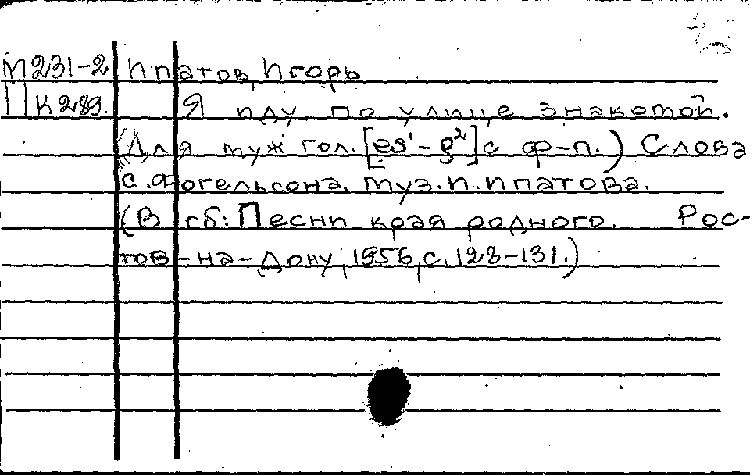 М231-2 Ипатов, Игорь
П К289. Я иду по улице знакомой.
(Для муж гол. [es¹-g²] с ф-п.) Слова
С. Фогельсона. Муз. И. Ипатова.
(В сб: Песни края родного. Рос-
тов-на-Дону, 1956, с. 128-131.)